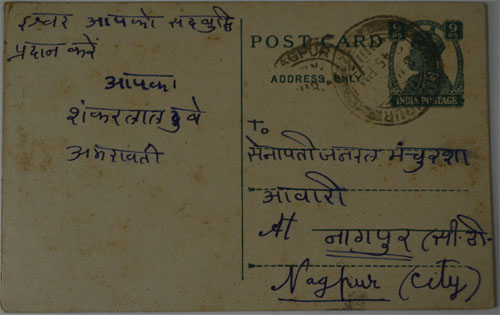 ईश्वर आपको सदबुद्धि
प्रदान करें
आपका
शंकरलाल दुवे
अमरावती
POST CARD
ADDRESS ONLY
9 PS
9 PS
INDIA POSTAGE
NAGPUR
To
सेनापती जनरल मंचुरशा
आवारी
At नागपुर (सी.टी.
Nagpur (City)